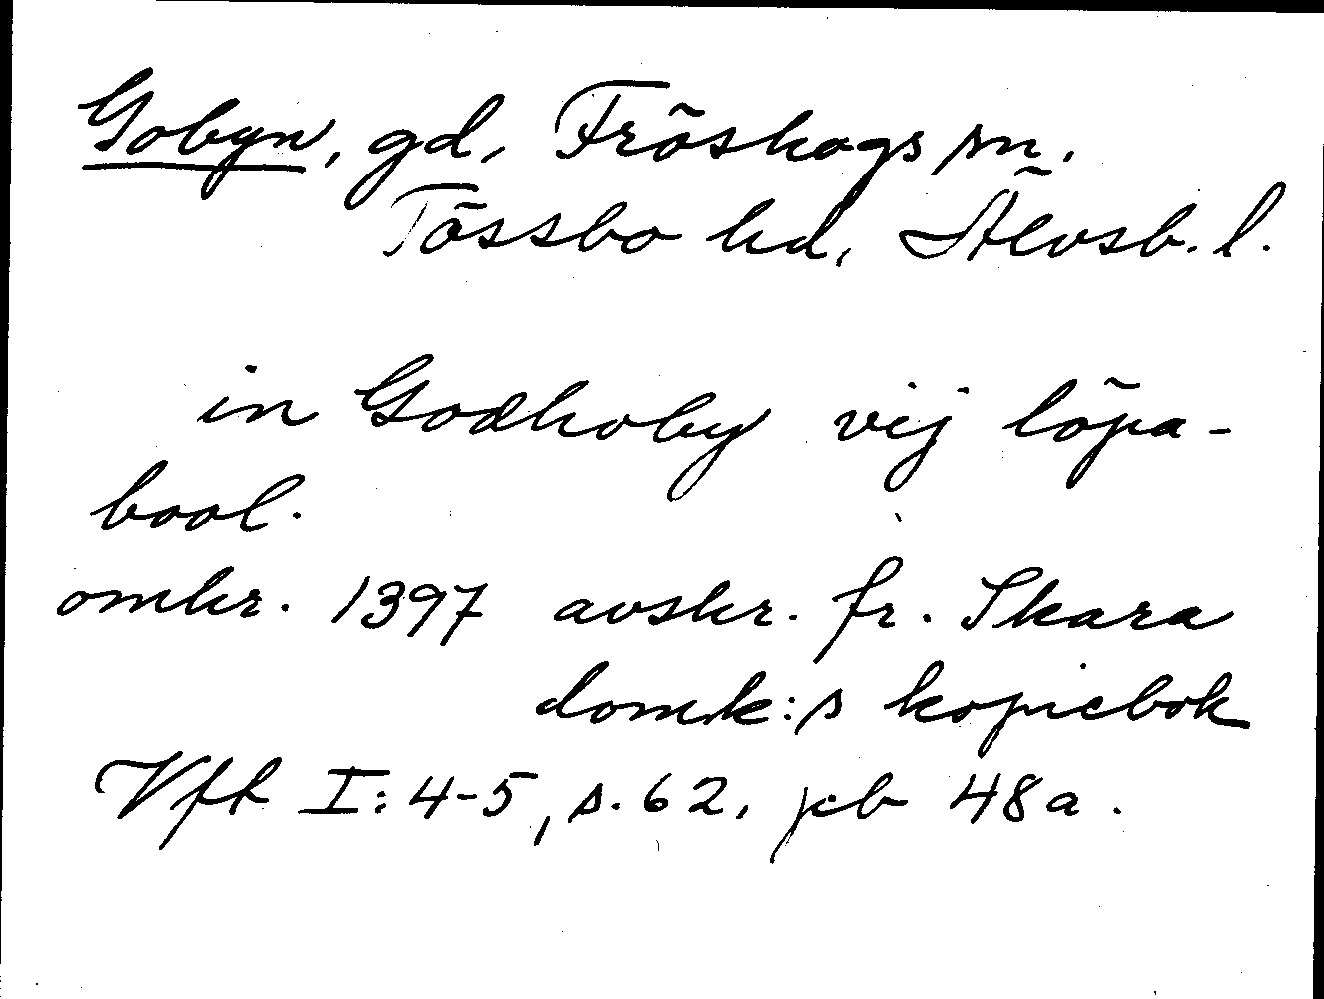 Gobyn, gd, Fröskogs sn.
Tössbo hd, Älvsb. l.
in Godhoby vij löpa-
bool.
omkr. 1397 avskr. fr. Skara
domk:s kopiebok
Vft I: 4-5, s. 62, jcb 48a.